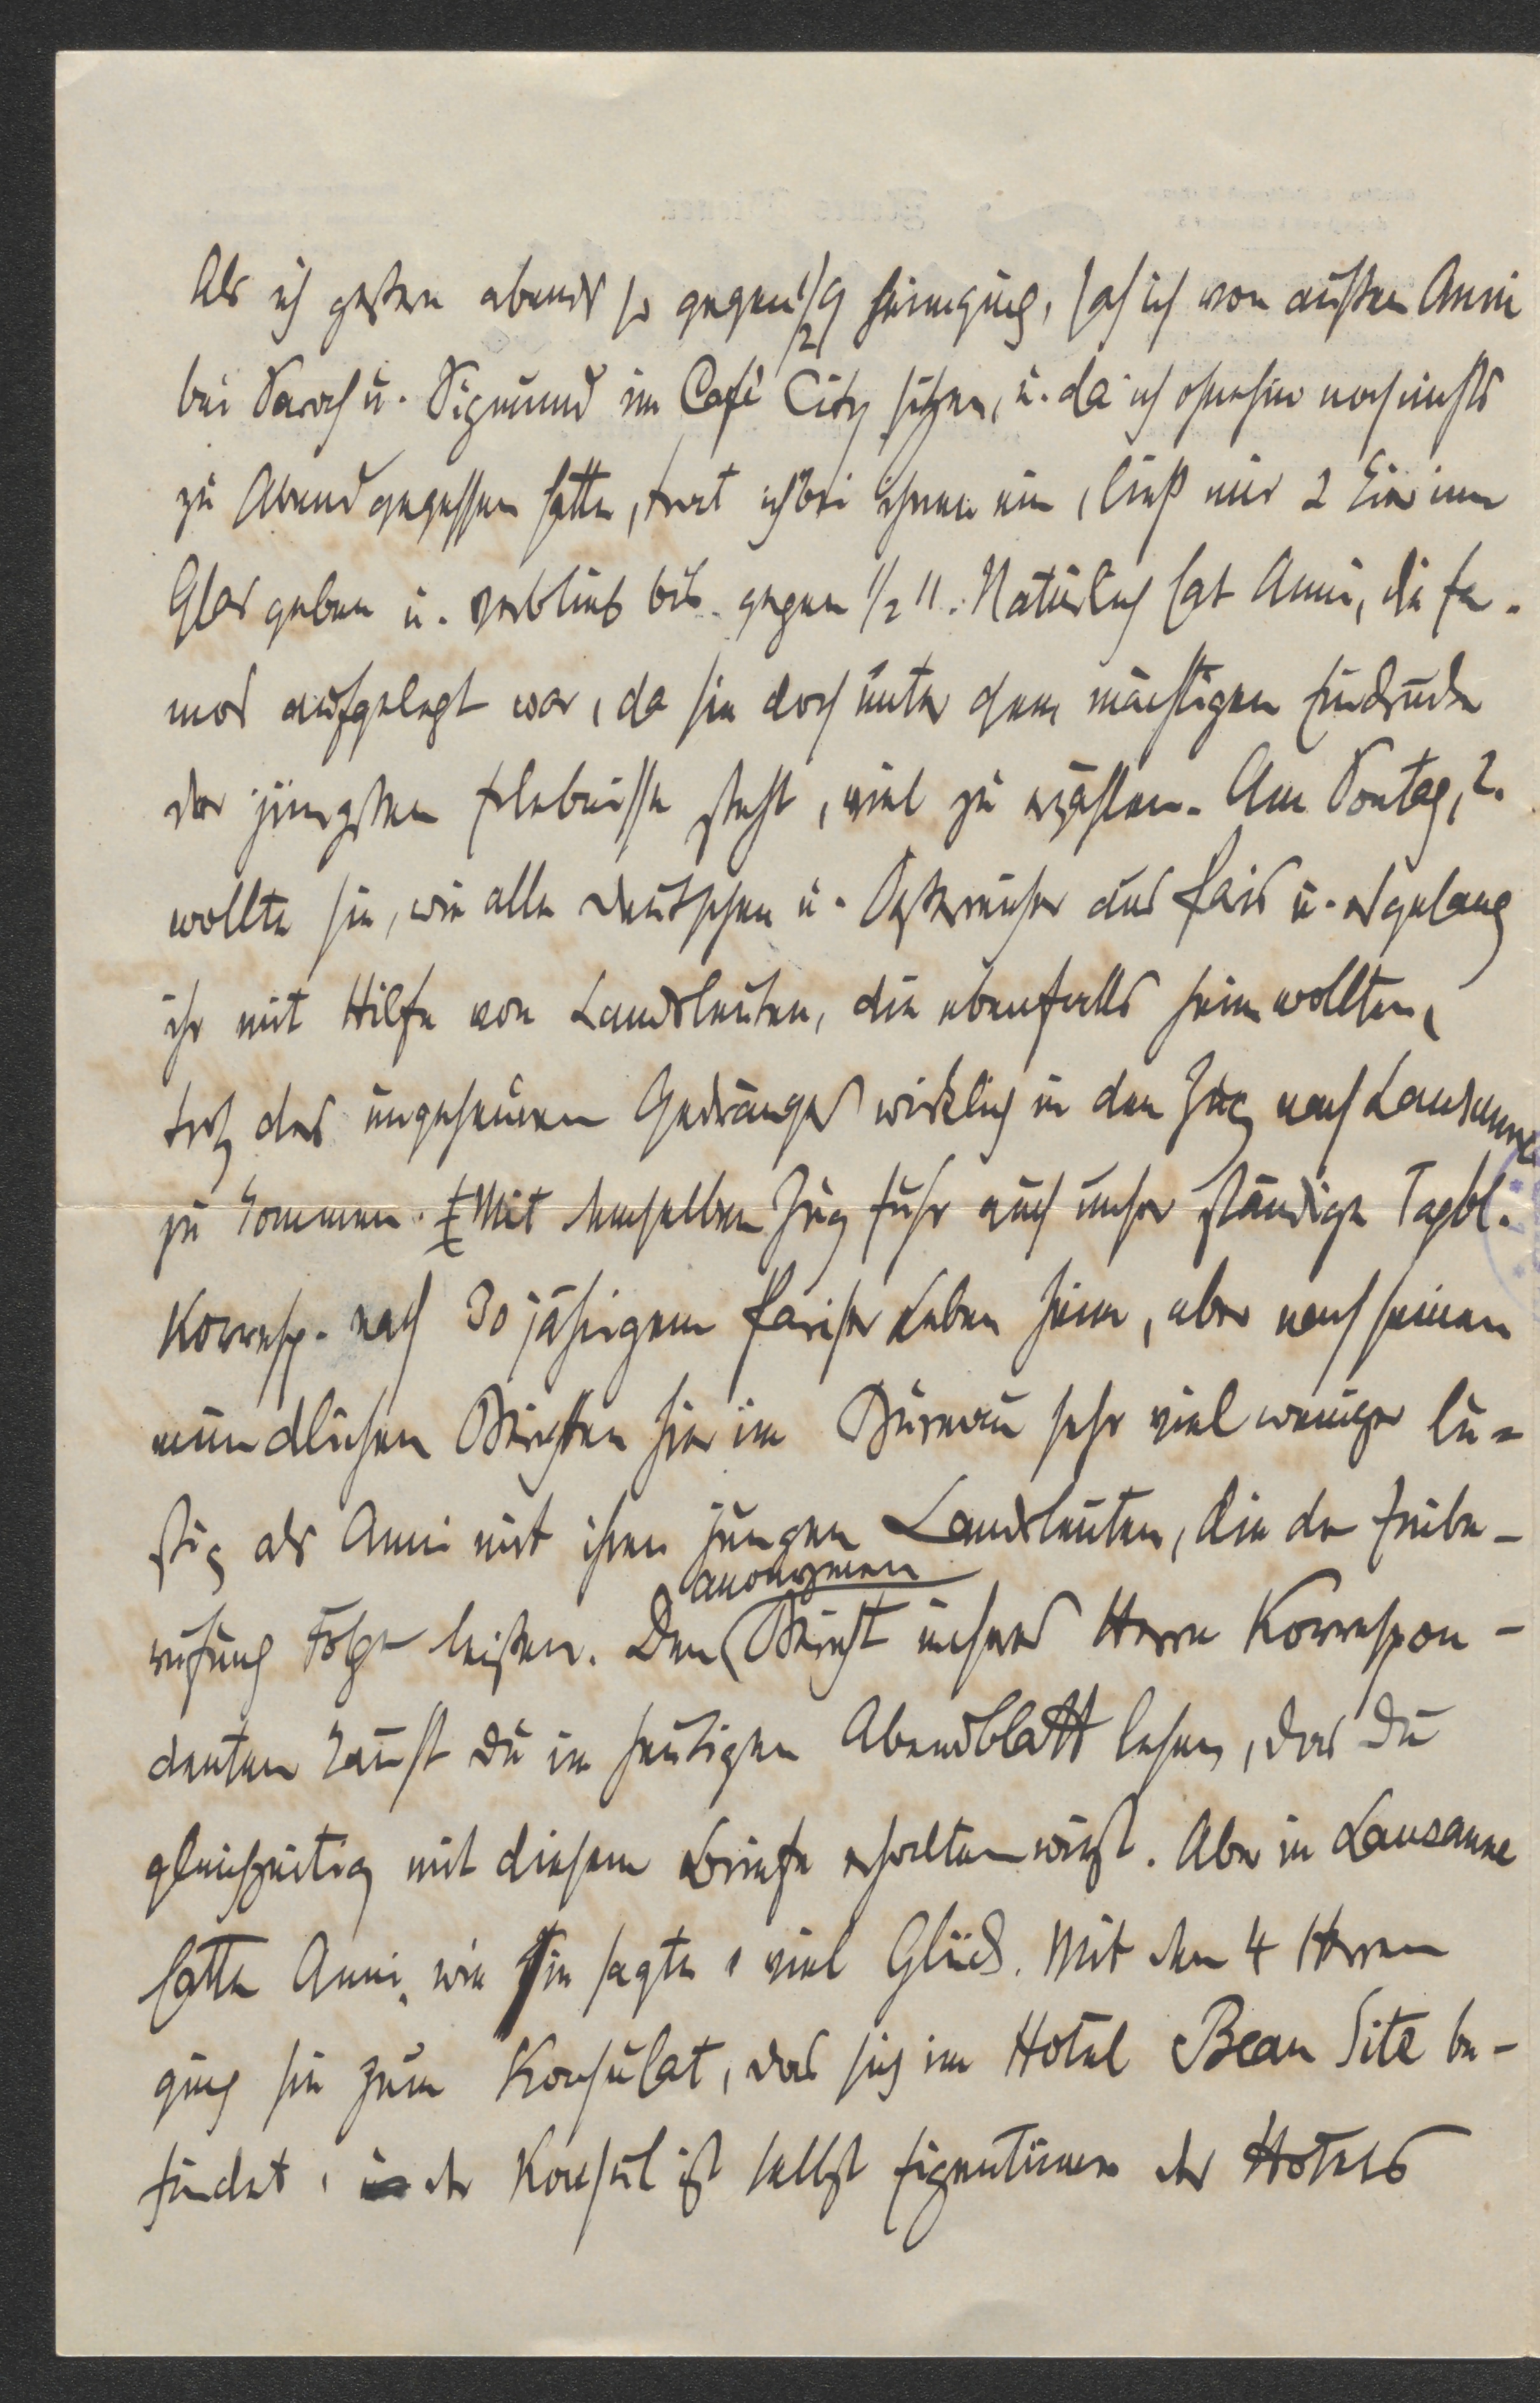 Als ich gestern abends so gegen 1/2 9 heimging, sah ich von außen Anni
bei Sarah u. Sigmund im Café City sitzen, u. da ich ohnehin noch nichts
zu Abend gegessen hatte, trat ich bei ihnen ein, ließ mir 2 Eier im
Glas geben u. verblieb bis gegen 1/2 11. Natürlich hat Anni, die fa-
mos aufgelegt war, da sie doch unter dem mächtigen Eindrucke
der jüngsten Erlebnisse steht, viel zu erzählen. Am Sontag, 2.
wollte sie, wie alle Deutschen u. Österreicher aus Paris u. es gelang
ihr mit Hilfe von Landsleuten, die ebenfalls heim wollten,
trotz des ungeheuren Gedränges wirklich in den Zug nach Lausanne
zu kommen. Mit demselben Zug fuhr auch unser ständiger Tagbl.
Korresp. nach 30 jährigem Pariser Leben heim, aber nach seinen
mündlichen Berichten hier im Bureau sehr viel weniger lu-
stig als Anni mit ihren jungen Landsleuten, die der Einbe-
rufung Folge leisten. Den anonymen Bericht unseres Herrn Korrespon-
denten kannst du im heutigen Abendblatt lesen, das du
gleichzeitig mit diesem Briefe erhalten wirst. Aber in Lausanne
hatte Anni, wie sie sagte, viel Glück. Mit den 4 Herren
ging sie zum Konsulat, das sich im Hotel Beau Site be-
findet, der Konsul ist selbst Eigentümer des Hotels